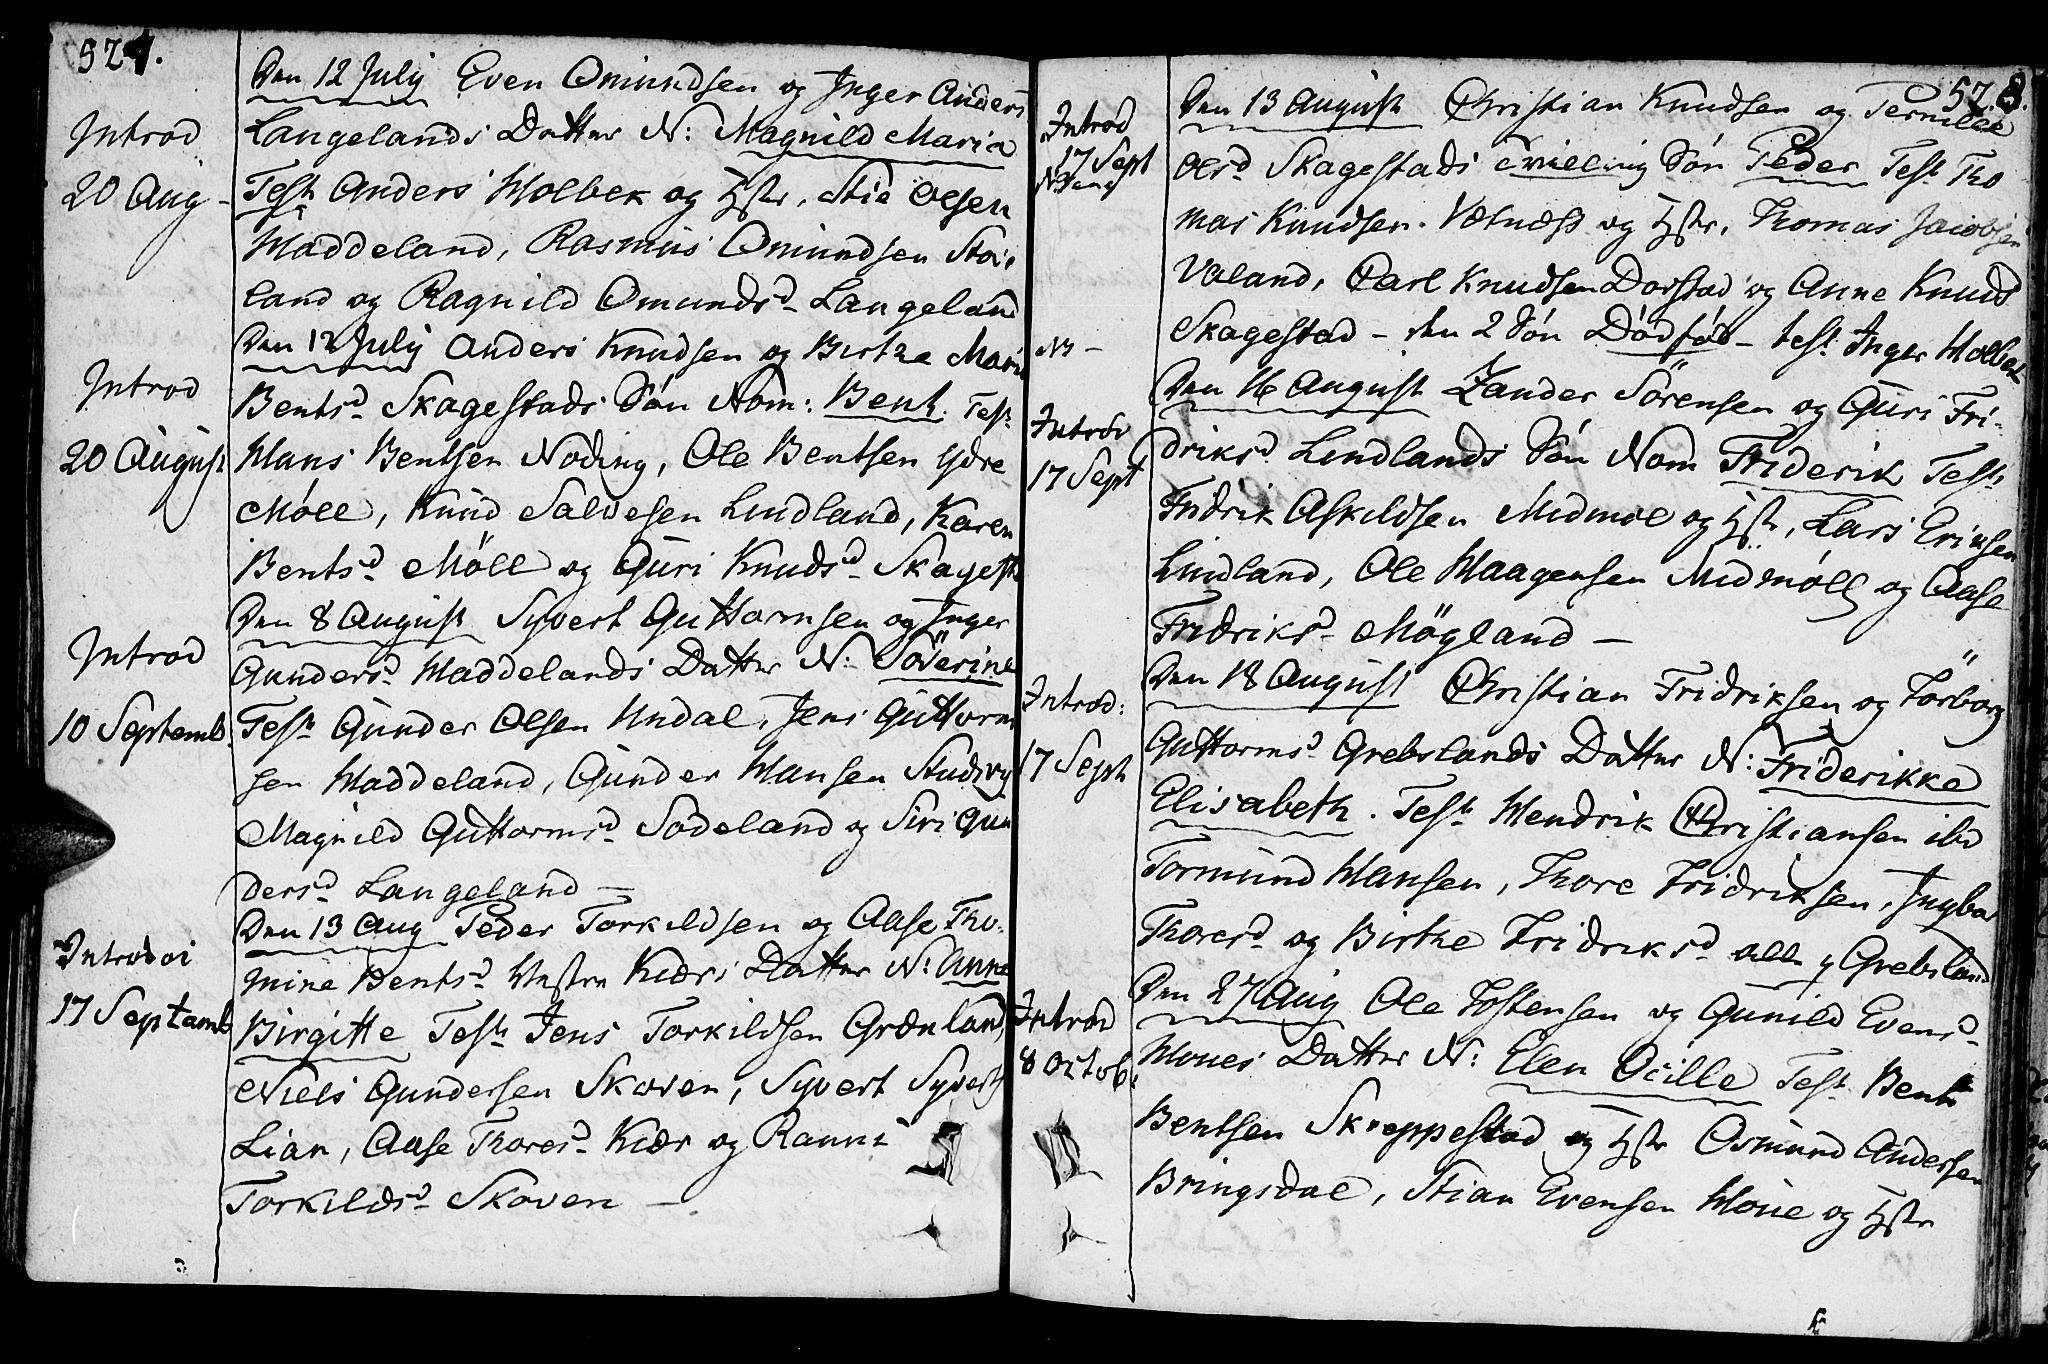 527.
Introd
20 Aug
Den 12 July Even Omundsen og Inger Anders
Langelands Datter N: Magnild Maria
Test Anders Holbek og Hstr, Stie Olsen
Haddeland, Rasmus Omundsen Stoi
land og Ragnild Omundsd Langeland
Introd
20 August
Den 12 July Anders Knudsen og Birthe Marie
Bentsd Skagestads Søn Nom: Bent. Test
Hans Bentsen Noding, Ole Bentsen ydre
Møll, Knud Salvesen Lindland, Karen
Bentsd Møll og Guri Knudsd Skagest
Introd
10 Septemb.
Den 8 August Syvert Guttormsen og Inger
Gundersd Haddelands Datter N: Söverine
Test Gunder Olsen Undal, Jens Guttorm
sen Haddeland, Gunder Hansen
Magnild Guttormsd Sodeland og Siri Gun
dersd Langeland —
Introd
17 Septamb
Den 13 Aug Peder Torkildsen og Aase Tho-
mine Bentsd Vestre Kiærs Datter N: Anne
Birgitte Test Jens Torkildsen Grønland,
Niels Gundersen Skoven, Syvert Syverts
Lian, Aase Thoresd Kiær og Ranni
Torkildsd Skoven —
528.
Introd
17 Sept
Den 13 August Christian Knudsen og Pernille
Olsd Skagestads Tvilling Søn Peder Test Tho
mas Knudsen Valnæss og Hstr, Thomas Jacobsen
Valand, Carl Knudsen Dorstad og Anne Knuds
NB —
Skagestad — den 2 Søn Dødfød — test Inger Holbek
Introd
17 Sept
Den 16 August Zander Sörensen og Guri Fri-
driksd Lindlands Søn Nom Friderik Test
Fridrik Askildsen Midmøl og Hstr, Lars Erichsen
Lindland, Ole Haagensen Midmøll og Aase
Fridriksd Mögland —
Introd:
17 Sept
Den 18 August Christian Fridriksen og Torborg
Guttormsd Grebslands Datter N: Friderikke
Elisabeth. Test Hendrik Christiansen ibd
Tormund Hansen, Thore Fridriksen, Ingbor
Thoresd og Birthe Fridriksd alle Grebsland
Introd
8 Octob.
Den 27 Aug Ole Tostensen og Gunild Evensd
Houes Datter N: Elen Ocille Test Bent
Bentsen Skreppestad og Hstr Osmund Andersen
Bringsdal, Stian Evensen Houe og Hstr